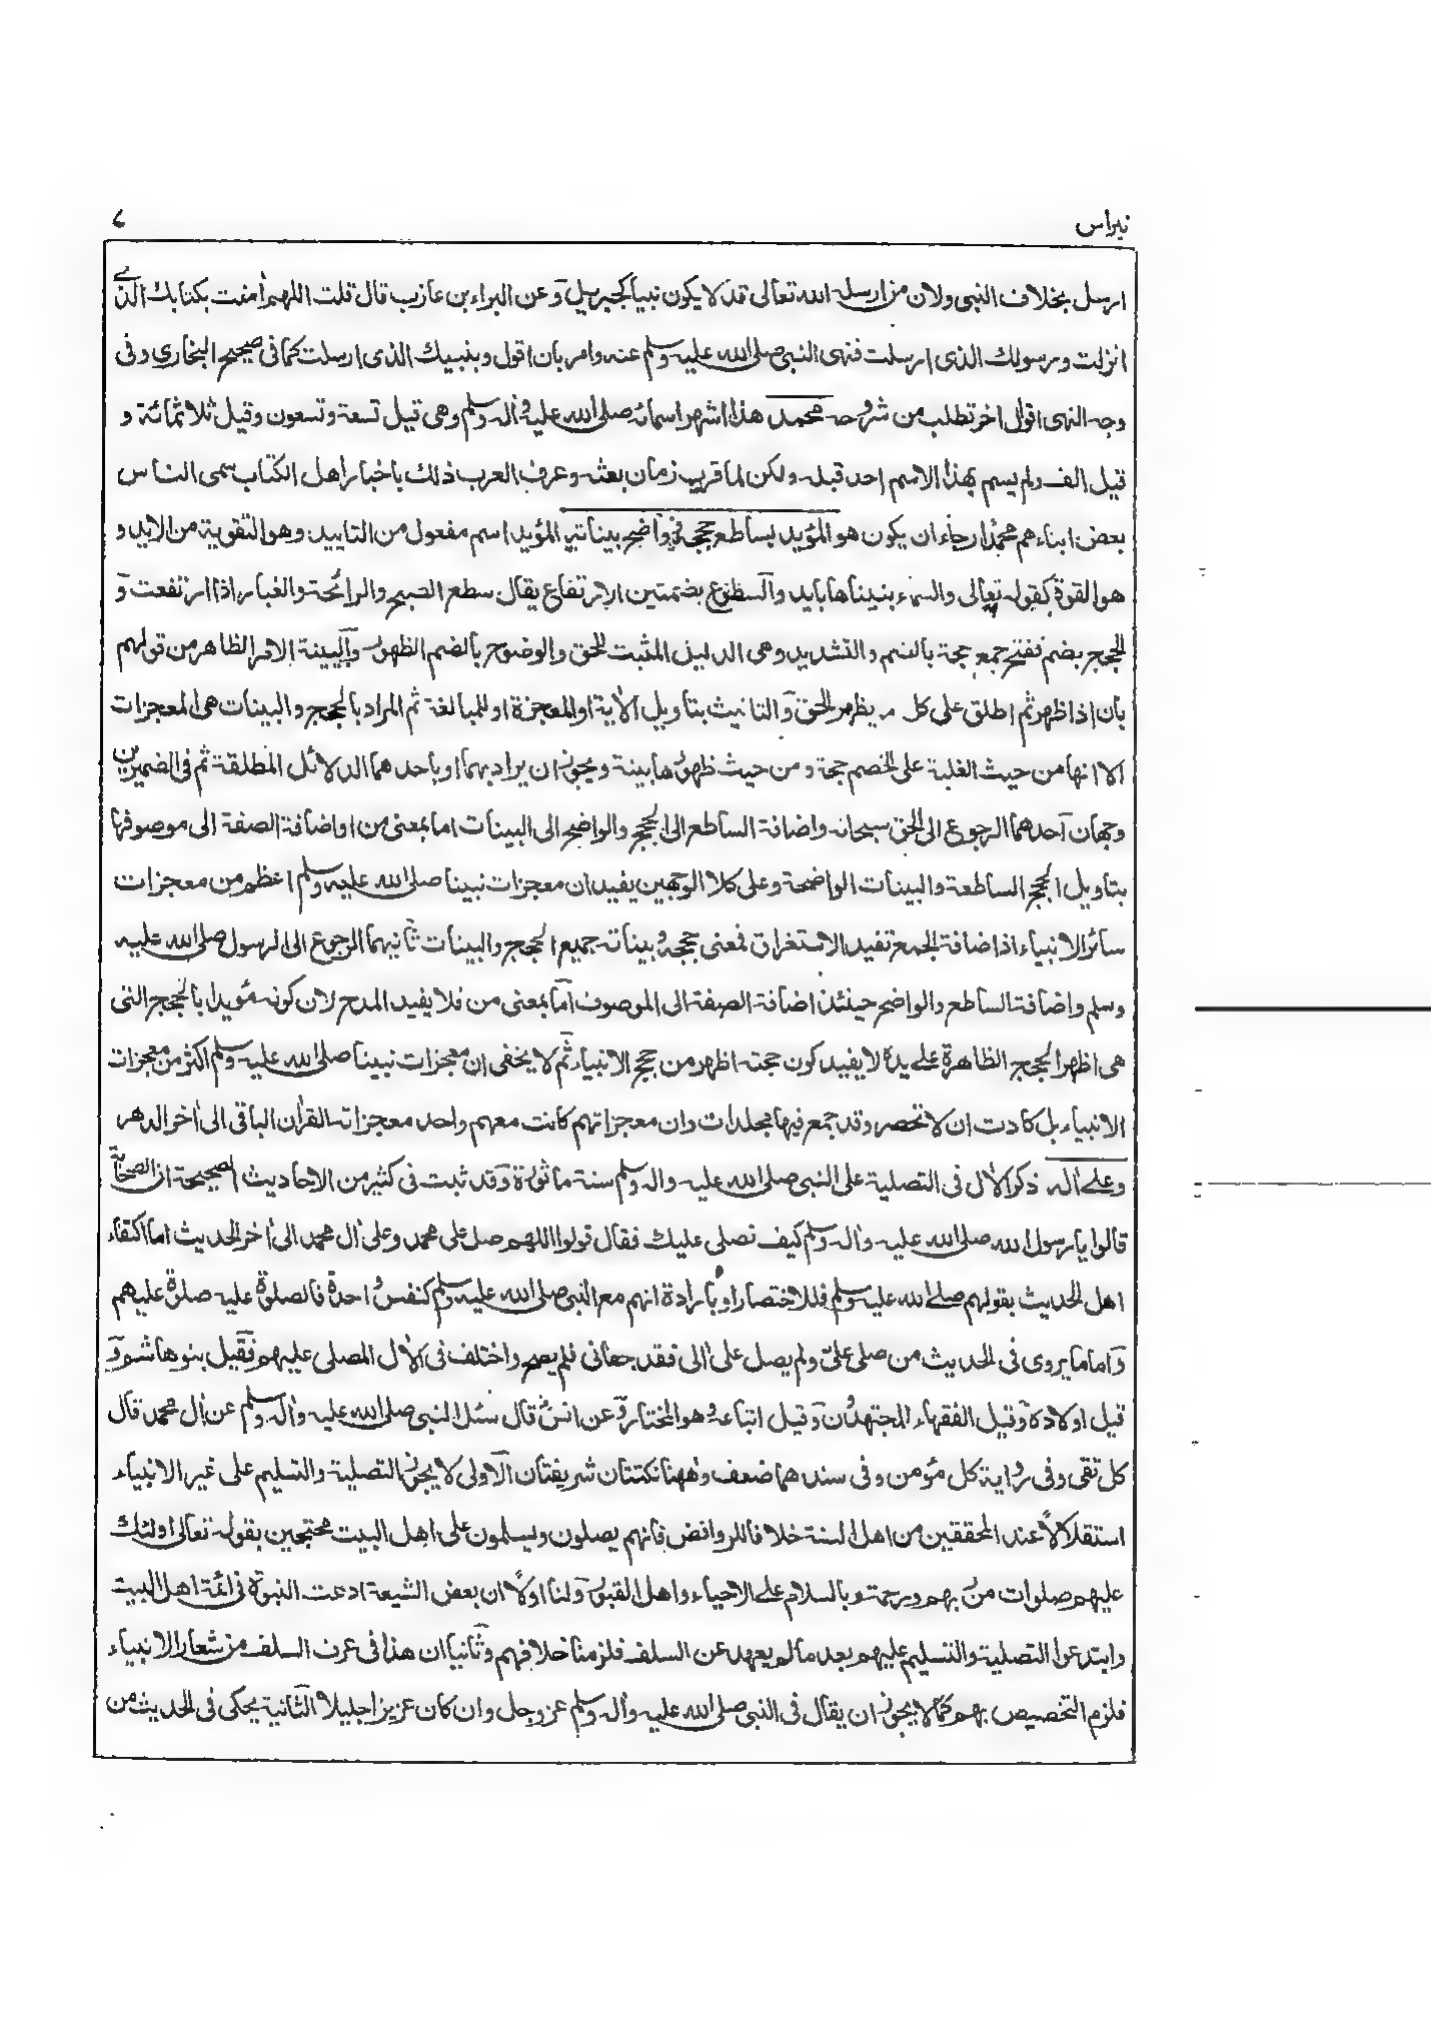 نبراس
٧
ارسل بخلاف النبی ولان من ارسله الله تعالى قد لا يكون نبيا كجبريل وعن البراء بن عازب قال قلت اللهم اٰمنت بكتابك الذی
انزلت وبرسولك الذی ارسلت فنهى النبی صلی الله عليه وسلم عنه وامر بان اقول وبنبيك الذی ارسلت كما فی صحيح البخاری وفی
وجه النهی اقوال اخر تطلب من شروحه محمد هذا اشهر اسمائه صلی الله عليه واٰله وسلم وهی قيل تسعة وتسعون وقيل ثلاثمائة و
قيل الف ولم يسم بهذا الاسم احد قبله ولكن لما قرب زمان بعثه وعرف العرب ذلك باخبار اهل الكتاب سمی الناس
بعض ابناءهم محمدا رجاء ان يكون هو المؤيد بساطع حججه وواضح بيناته المؤيد اسم مفعول من التاييد وهو التقوية من الايد و
هو القوة كقوله تعالى والسماء بنيناها بايد والسطوع بضمتين الارتفاع يقال سطع الصبح والرائحة والغبار اذا ارتفعت و
الحجج بضم ففتح جمع حجة بالضم والتشديد وهی الدليل المثبت للحق والوضوح بالضم الظهور والبينة الامر الظاهر من قولهم
بان اذا ظهر ثم اطلق على كل ما يظهر الحق والتانيث بتاويل الاٰية او المعجزة او للمبالغة ثم المراد بالحجج والبينات هی المعجزات
الا انها من حيث الغلبة على الخصم حجة ومن حيث ظهورها بينة ويجوز ان يراد بهما او باحدهما الدلائل المطلقة ثم فی الضميرين
وجهان احدهما الرجوع الى الحق سبحانه واضافة الساطع الى الحجج والواضح الى البينات اما بمعنى من او اضافة الصفة الى موصوفها
بتاويل الحجج الساطعة والبينات الواضحة وعلى كلا الوجهين يفيد ان معجزات نبينا صلی الله عليه وسلم اعظم من معجزات
سائر الانبياء اذ اضافة الجمع تفيد الاستغراق فمعنى حججه وبيناته جميع الحجج والبينات ثانيهما الرجوع الى الرسول صلی الله عليه
وسلم واضافة الساطع والواضح حينئذ اضافة الصفة الى الموصوف اما بمعنى من فلا يفيد المدح لان كونه مؤيدا بالحجج التی
هی اظهر الحجج الظاهرة على يده لا يفيد كون حجته اظهر من حجج الانبياء ثم لا يخفى ان معجزات نبينا صلی الله عليه وسلم اكثر من معجزات
الانبياء بل كادت ان لا تحصر وقد جمع فيها مجلدات وان معجزاتهم كانت معهم واحد معجزاته القراٰن الباقی الى اٰخر الدهر
وعلى اٰله ذكر الاٰل فی التصلية على النبی صلی الله عليه واله وسلم سنة ماثورة وقد ثبت فی كثير من الاحاديث الصحيحة ان الصحابة
قالوا يا رسول الله صلی الله عليه واٰله وسلم كيف نصلی عليك فقال قولوا اللهم صل على محمد وعلى اٰل محمد الى اٰخر الحديث اما اكتفاء
اهل الحديث بقولهم صلی الله عليه وسلم فللاختصار او بارادة انهم مع النبی صلی الله عليه وسلم كنفس واحدة فالصلوة عليه صلوة عليهم
واما ما يروى فی الحديث من صلى علیّ ولم يصل على اٰلی فقد جفانی فلم يصح واختلف فی الاٰل المصلى عليهم فقيل بنو هاشم و
قيل اولاده وقيل الفقهاء المجتهدون وقيل اتباعه وهو المختار وعن انس قال سئل النبی صلی الله عليه واٰله وسلم عن اٰل محمد قال
كل تقی وفی رواية كل مؤمن وفی سندهما ضعف وههنا نكتتان شريفتان الاولى لا يجوز التصلية والتسليم على غير الانبياء
استقلالاً عند المحققين من اهل السنة خلافا للروافض فانهم يصلون ويسلمون على اهل البيت محتجين بقوله تعالى اولئك
عليهم صلوات من ربهم ورحمة وبالسلام على الاحياء واهل القبور ولنا اولاً ان بعض الشيعة ادعت النبوة فی ائمة اهل البيت
وابتدعوا التصلية والتسليم عليهم بعد ما لم يعهد عن السلف فلزمنا خلافهم وثانيا ان هذا فی عرف السلف من شعار الانبياء
فلزم التخصيص بهم كما لا يجوز ان يقال فی النبی صلی الله عليه واٰله وسلم عز وجل وان كان عزيزا جليلا الثانية يحكى فی الحديث من